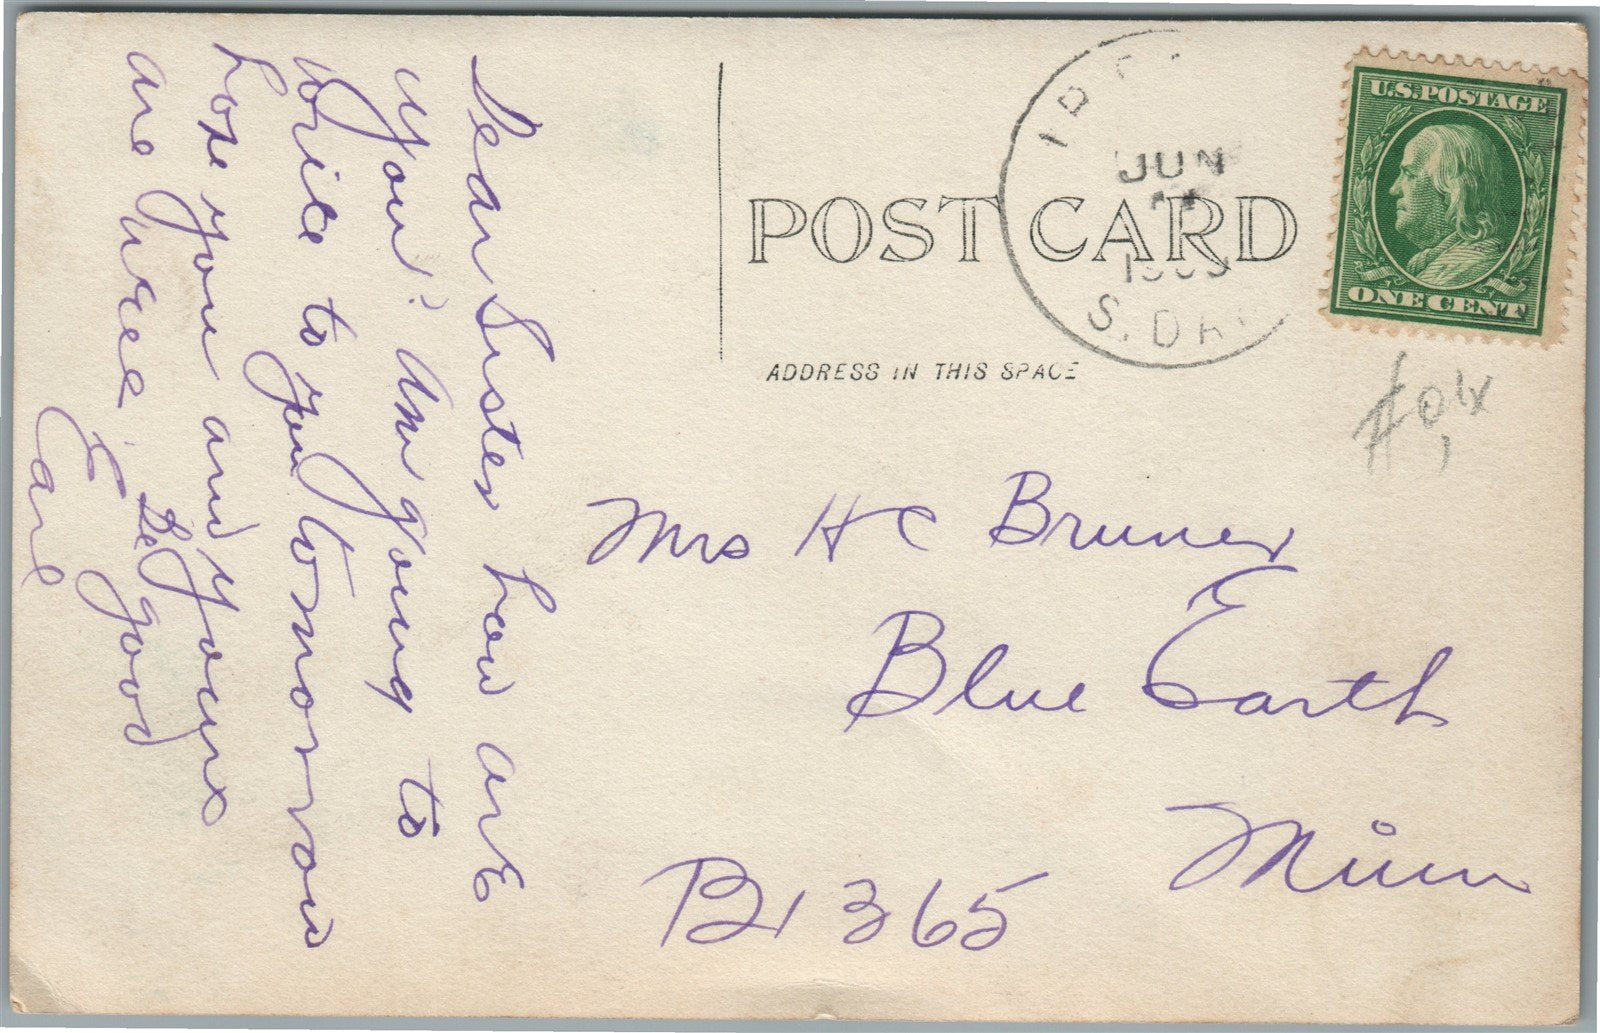 Dear Sister how are
you? Am going to
write to you tomorrow
hope you and yours
are well. Be good
Earl
POST CARD
ADDRESS IN THIS SPACE
JUN
1909
S. DAK
U.S. POSTAGE
ONE CENT
Mrs H C Bruner
Blue Earth
Minn
Bx 365